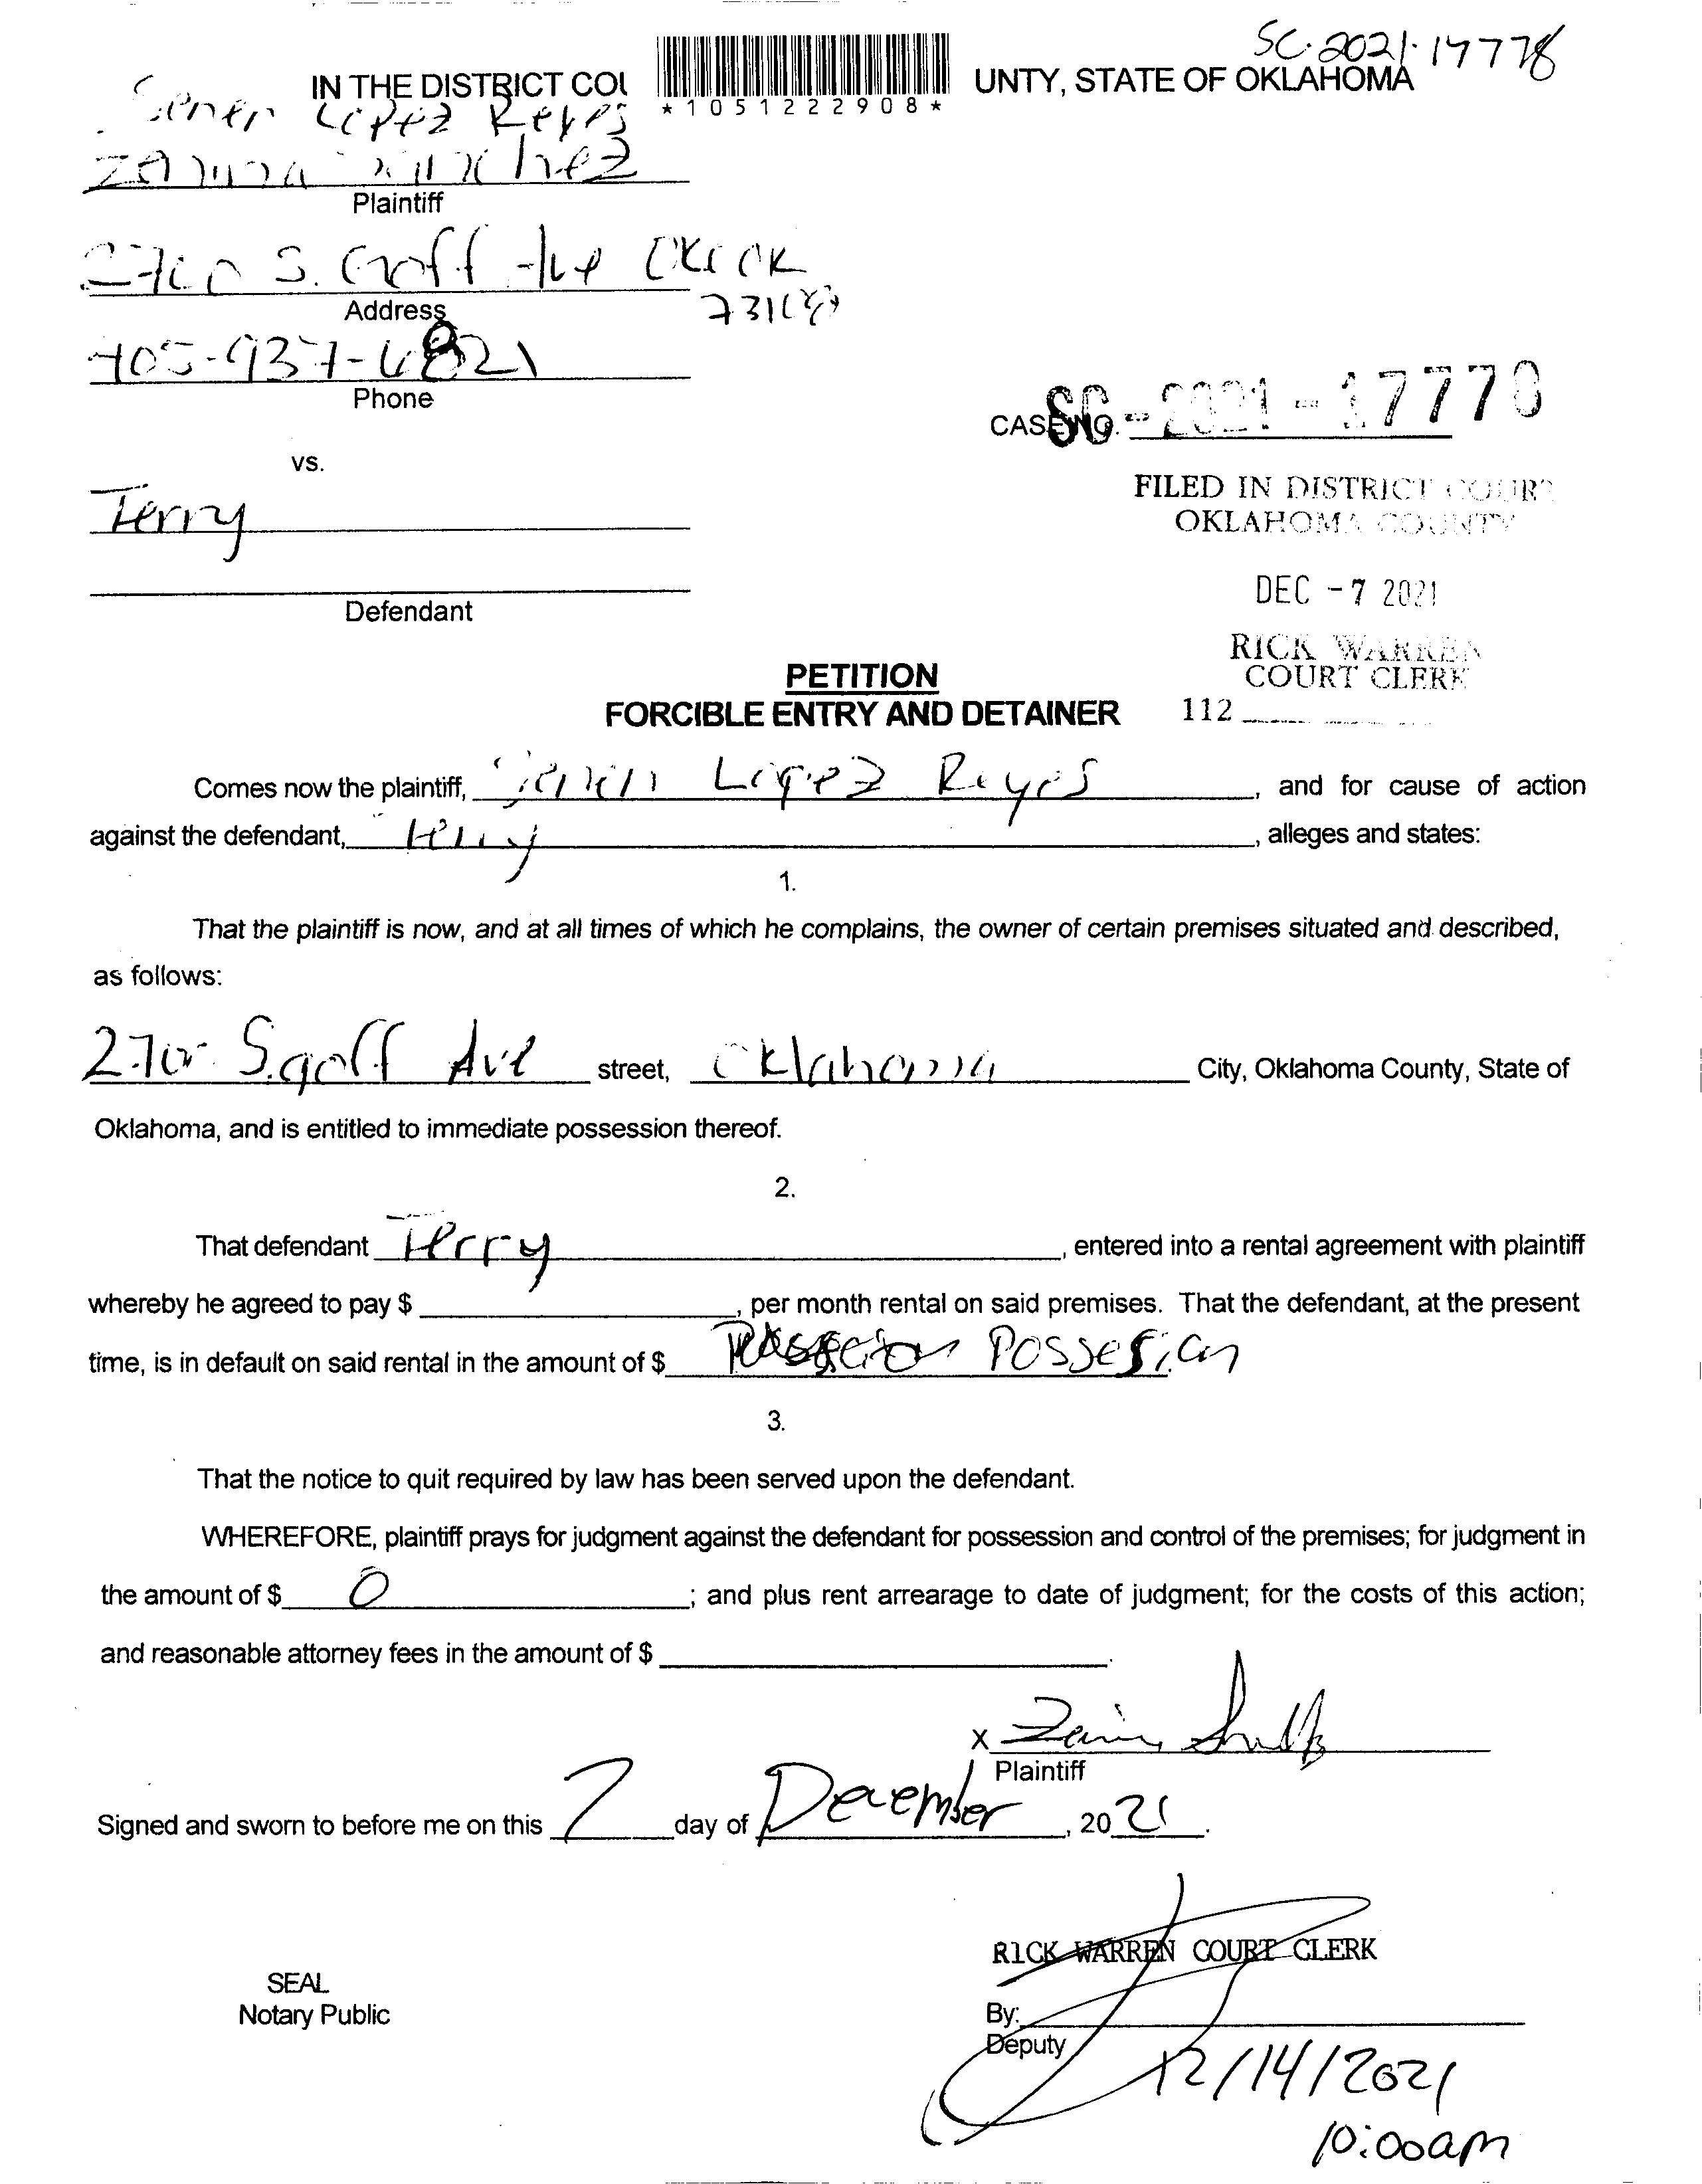 SC-2021-17778
IN THE DISTRICT COU
*1051222908*
UNTY, STATE OF OKLAHOMA
Lopez Reyes
Plaintiff
S. Goff Ave OKC OK
Address
405-937-6821
Phone
CASE NO. SC-2021-17778
vs.
Terry
FILED IN DISTRICT COURT
OKLAHOMA COUNTY
Defendant
DEC -7 2021
RICK WARREN
COURT CLERK
112
PETITION
FORCIBLE ENTRY AND DETAINER
Comes now the plaintiff, Lopez Reyes, and for cause of action
against the defendant, Terry, alleges and states:
1.
That the plaintiff is now, and at all times of which he complains, the owner of certain premises situated and described,
as follows:
S. goff Ave street, Oklahoma City, Oklahoma County, State of
Oklahoma, and is entitled to immediate possession thereof.
2.
That defendant Terry, entered into a rental agreement with plaintiff
whereby he agreed to pay $ , per month rental on said premises. That the defendant, at the present
time, is in default on said rental in the amount of $ Possesion
3.
That the notice to quit required by law has been served upon the defendant.
WHEREFORE, plaintiff prays for judgment against the defendant for possession and control of the premises; for judgment in
the amount of $ 0 ; and plus rent arrearage to date of judgment; for the costs of this action;
and reasonable attorney fees in the amount of $ .
X
Plaintiff
Signed and sworn to before me on this 7 day of December, 2021.
RICK WARREN COURT CLERK
SEAL
Notary Public
By:
Deputy
12/14/2021
10:00am